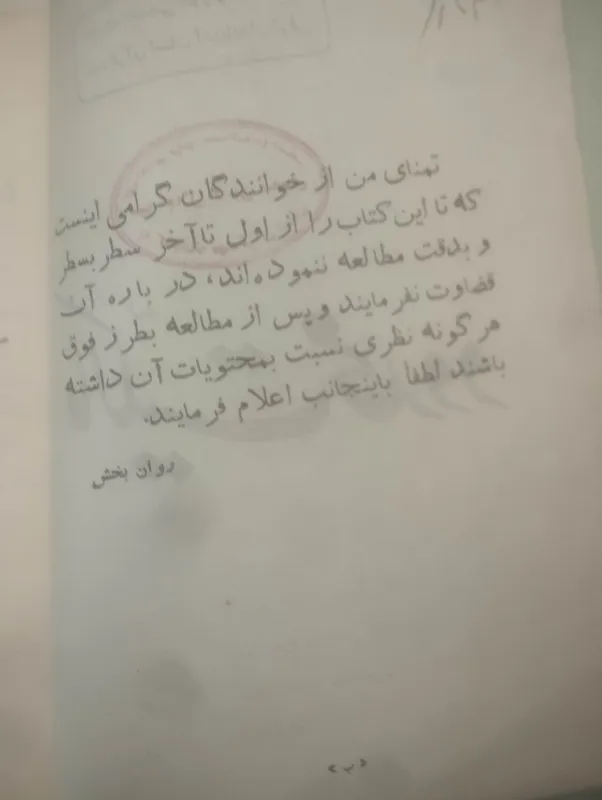 تمنای من از خوانندگان گرامی اینست
که تا این کتاب را از اول تا آخر سطر بسطر
و بدقت مطالعه ننموده‌اند، در باره آن
قضاوت نفرمایند و پس از مطالعه بطرز فوق
هر گونه نظری نسبت بمحتویات آن داشته
باشند لطفا باینجانب اعلام فرمایند.
روان بخش
«ب»